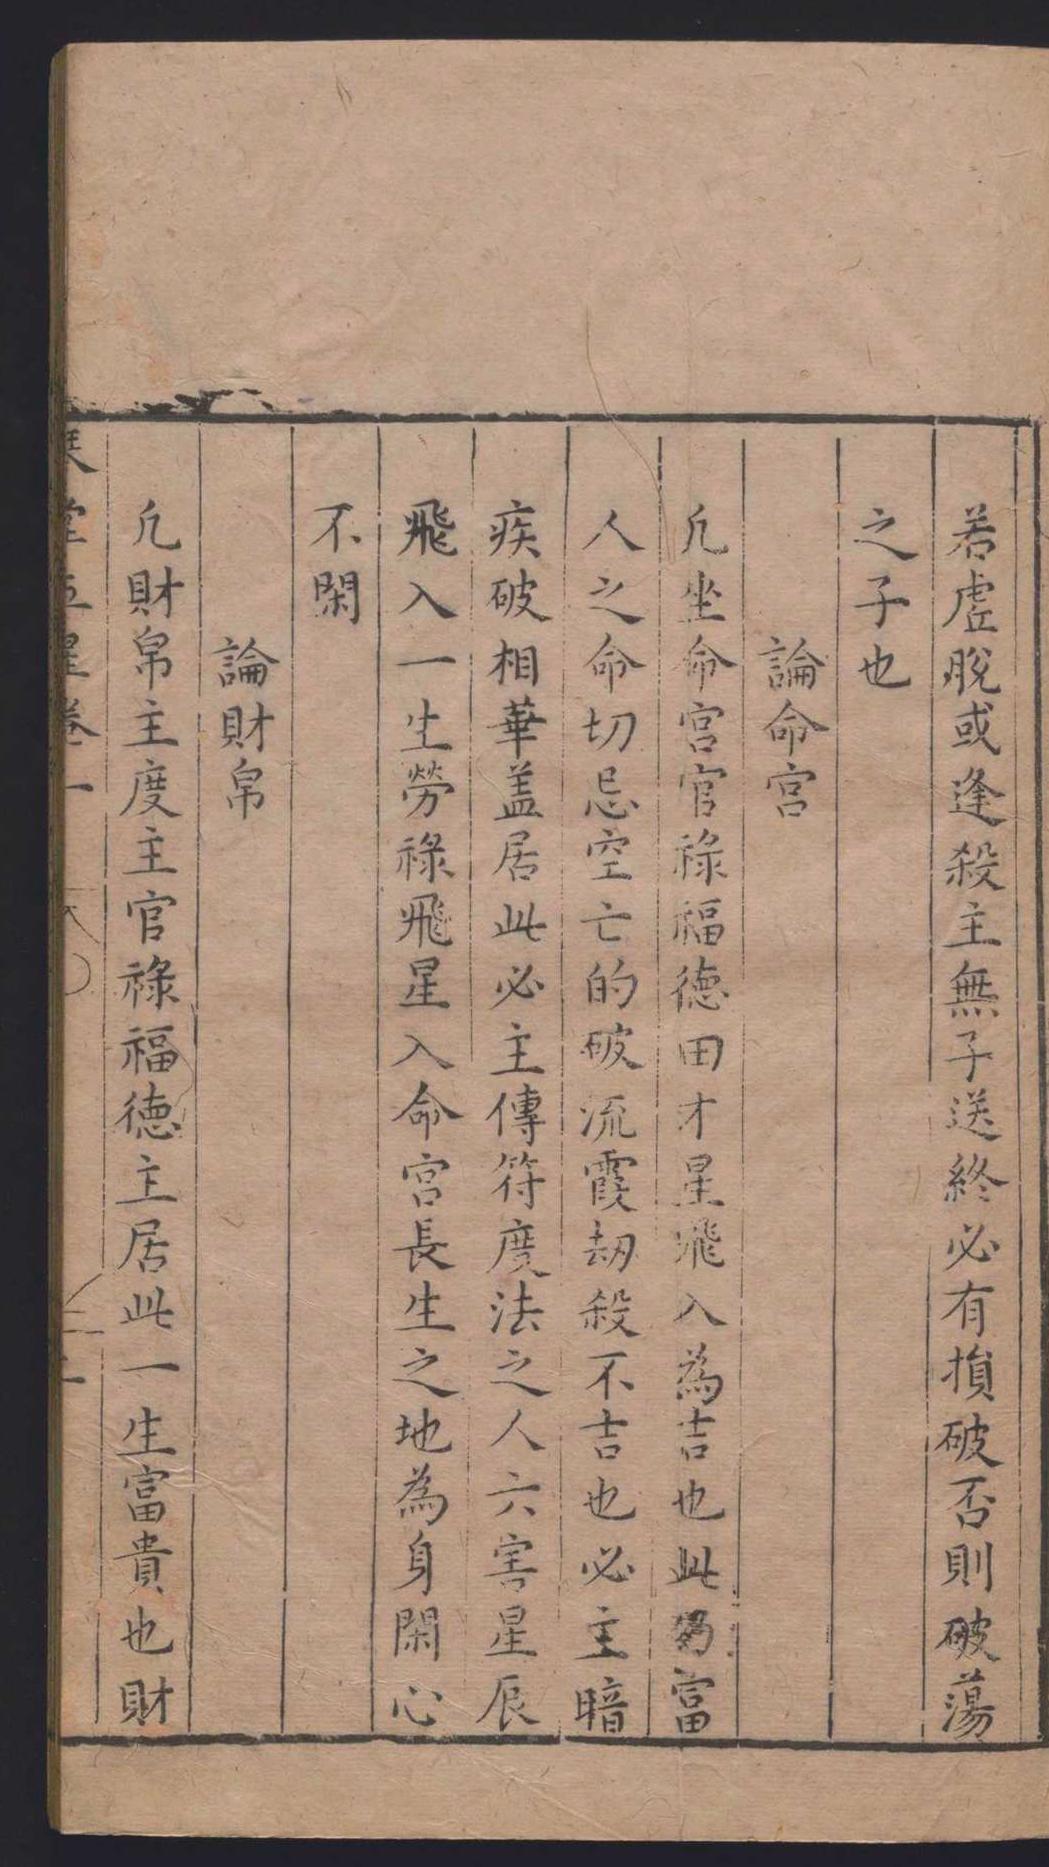 若虗脫或逢殺主無子送終必有損破否則破蕩
之子也
論命宫
凢坐命宫官祿福德田才星飛入為吉也此為富
人之命切忌空亡的破流霞刼殺不吉也必主暗
疾破相華盖居此必主傳符度法之人六害星辰
飛入一生勞祿飛星入命宫長生之地為身閑心
不閑
論財帛
凢財帛主度主官祿福德主居此一生富貴也財
堂五星卷一